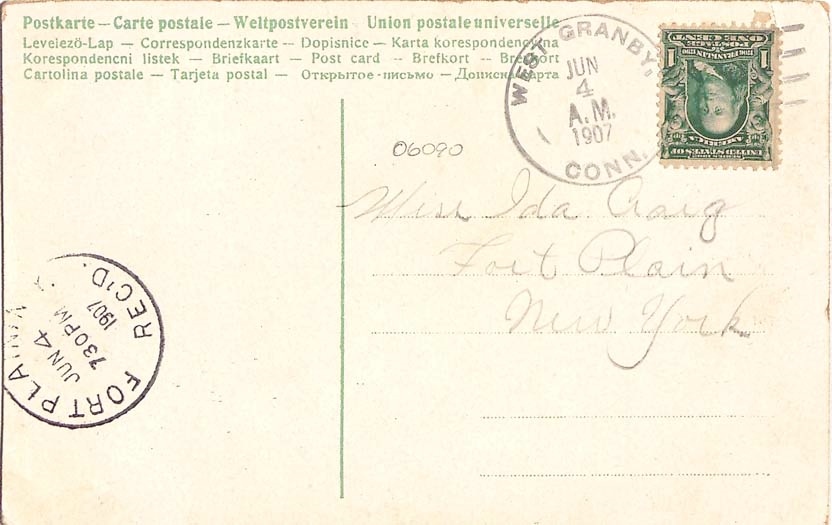 Postkarte — Carte postale — Weltpostverein Union postale universelle
Levelező-Lap — Correspondenzkarte — Dopisnice — Karta korespondencyjna
Korespondencni listek — Briefkaart — Post card — Brefkort — Brevkort
Cartolina postale — Tarjeta postal — Открытое-письмо — Дописна карта
WEST GRANBY,
JUN
4
A.M.
1907
CONN.
ONE CENT
POSTAGE
1 1
FRANKLIN
AMERICA
UNITED STATES OF
SERIES 1902
06090
Miss Ida Craig
Fort Plain
New York
FORT PLAIN
JUN 4
730PM
1907
REC'D.